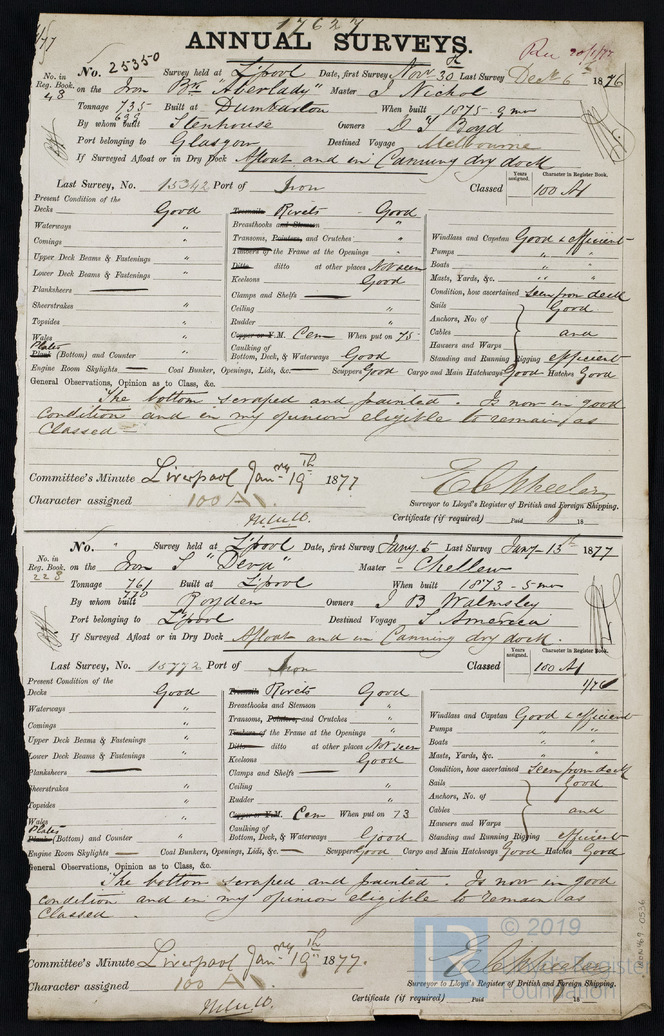 17627
ANNUAL SURVEYS.
Rec 20/1/77
No. in Reg. Book. 48
No. 25350 Survey held at L'pool Date, first Survey Novr 30th Last Survey Decr 6th 1876
on the Iron Bk "Aberlady" Master J Nichol
Tonnage 735 Built at Dumbarton When built 1875 - 9 mo
699
By whom built Stenhouse Owners D T Boyd
Port belonging to Glasgow Destined Voyage Melbourne
If Surveyed Afloat or in Dry Dock Afloat and in Canning dry dock
Years assigned. Character in Register Book.
Last Survey, No. 15342 Port of Iron Classed 100 A1
Present Condition of the
Decks Good
Waterways "
Comings "
Upper Deck Beams & Fastenings "
Lower Deck Beams & Fastenings "
Planksheers
Sheerstrakes "
Topsides "
Wales "
Plates
Plank (Bottom) and Counter "
Treenails Rivets Good
Breasthooks and Stemson "
Transoms, Pointers, and Crutches "
Timbers of the Frame at the Openings "
Ditto ditto at other places Not seen
Keelsons Good
Clamps and Shelfs
Ceiling "
Rudder "
Copper or Y.M. Cem When put on 75
Caulking of Bottom, Deck, & Waterways Good
Windlass and Capstan Good & efficient
Pumps " "
Boats " "
Masts, Yards, &c. " "
Condition, how ascertained Seen from deck
Sails Good
Anchors, No. of
Cables and
Hawsers and Warps
Standing and Running Rigging efficient
Engine Room Skylights Coal Bunker, Openings, Lids, &c. Scuppers Good Cargo and Main Hatchways Good Hatches Good
General Observations, Opinion as to Class, &c.
The bottom scraped and painted. Is now in good
condition and in my opinion eligible to remain as
Classed
Committee's Minute Liverpool Janry 19th 1877
Character assigned 100 A1.
Surveyor to Lloyd's Register of British and Foreign Shipping.
Certificate (if required) Paid 18
No. in Reg. Book. 228
No. " Survey held at L'pool Date, first Survey Jany 5 Last Survey Jany 15th 1877
on the Iron S "Deva" Master Chellew
Tonnage 761 Built at L'pool When built 1873 - 5 mo
770
By whom built Royden Owners J B Walmsley
Port belonging to L'pool Destined Voyage S America
If Surveyed Afloat or in Dry Dock Afloat and in Canning dry dock.
Years assigned. Character in Register Book.
Last Survey, No. 15772 Port of Iron Classed 100 A1
1/76
Present Condition of the
Decks Good
Waterways "
Comings "
Upper Deck Beams & Fastenings "
Lower Deck Beams & Fastenings "
Planksheers
Sheerstrakes "
Topsides "
Wales "
Plates
Plank (Bottom) and Counter "
Treenails Rivets Good
Breasthooks and Stemson "
Transoms, Pointers, and Crutches "
Timbers of the Frame at the Openings "
Ditto ditto at other places Not seen
Keelsons Good
Clamps and Shelfs
Ceiling "
Rudder "
Copper or Y.M. Cem When put on 73
Caulking of Bottom, Deck, & Waterways Good
Windlass and Capstan Good & efficient
Pumps " "
Boats " "
Masts, Yards, &c. " "
Condition, how ascertained Seen from deck
Sails Good
Anchors, No. of
Cables and
Hawsers and Warps
Standing and Running Rigging efficient
Engine Room Skylights Coal Bunkers, Openings, Lids, &c. Scuppers Good Cargo and Main Hatchways Good Hatches Good
General Observations, Opinion as to Class, &c.
The bottom scraped and painted. Is now in good
condition and in my opinion eligible to remain as
Classed.
Committee's Minute Liverpool Janry 19th 1877.
Character assigned 100 A1
Surveyor to Lloyd's Register of British and Foreign Shipping.
Certificate (if required) Paid 18
© 2019
Lloyd's Register
Foundation